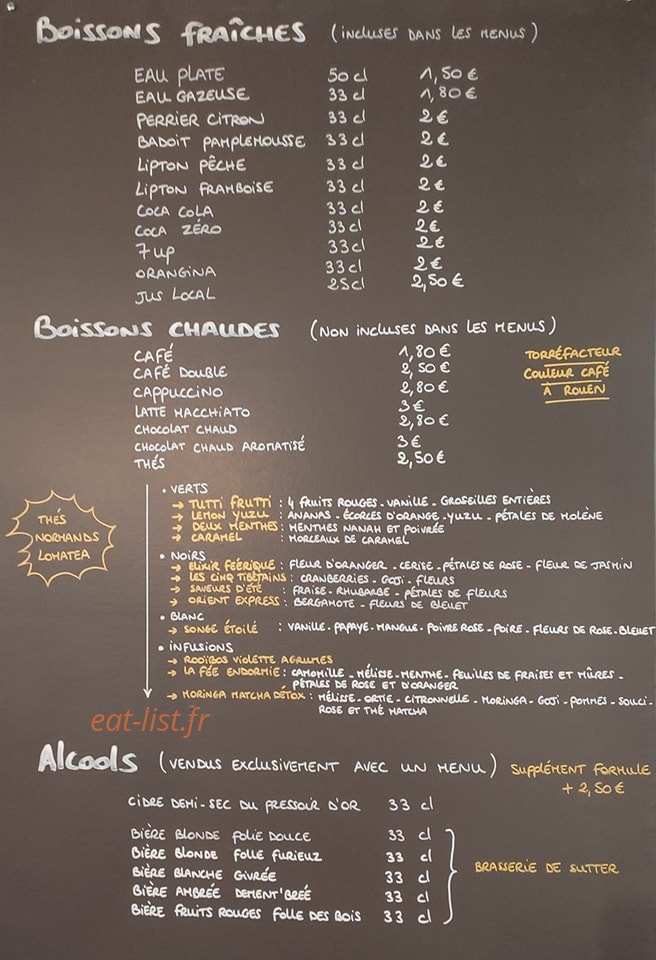 BOISSONS FRAÎCHES (INCLUSES DANS LES MENUS)
EAU PLATE 50 cl 1,50 €
EAU GAZEUSE 33 cl 1,80 €
PERRIER CITRON 33 cl 2 €
BADOIT PAMPLEMOUSSE 33 cl 2 €
LIPTON PÊCHE 33 cl 2 €
LIPTON FRAMBOISE 33 cl 2 €
COCA COLA 33 cl 2 €
COCA ZÉRO 33 cl 2 €
7 up 33 cl 2 €
ORANGINA 33 cl 2 €
JUS LOCAL 25 cl 2,50 €
BOISSONS CHAUDES (NON INCLUSES DANS LES MENUS)
CAFÉ 1,80 €
CAFÉ DOUBLE 2,50 €
CAPPUCCINO 2,80 €
LATTE MACCHIATO 3 €
CHOCOLAT CHAUD 2,80 €
CHOCOLAT CHAUD AROMATISÉ 3 €
THÉS 2,50 €
TORRÉFACTEUR
COULEUR CAFÉ
À ROUEN
THÉS
NORMANDS
LOMATEA
• VERTS
→ TUTTI FRUTTI : 4 FRUITS ROUGES - VANILLE - GROSEILLES ENTIÈRES
→ LEMON YUZU : ANANAS - ÉCORCES D'ORANGE - YUZU - PÉTALES DE MOLÈNE
→ DEUX MENTHES : MENTHES NANAH ET POIVRÉE
→ CARAMEL : MORCEAUX DE CARAMEL
• NOIRS
→ ELIXIR FÉÉRIQUE : FLEUR D'ORANGER - CERISE - PÉTALES DE ROSE - FLEUR DE JASMIN
→ LES CINQ TIBÉTAINS : CRANBERRIES - GOJI - FLEURS
→ SAVEURS D'ÉTÉ : FRAISE - RHUBARBE - PÉTALES DE FLEURS
→ ORIENT EXPRESS : BERGAMOTE - FLEURS DE BLEUET
• BLANC
→ SONGE ÉTOILÉ : VANILLE - PAPAYE - MANGUE - POIVRE ROSE - POIRE - FLEURS DE ROSE - BLEUET
• INFUSIONS
→ ROOÏBOS VIOLETTE AGRUMES
→ LA FÉE ENDORMIE : CAMOMILLE - MÉLISSE - MENTHE - FEUILLES DE FRAISES ET MÛRES -
PÉTALES DE ROSE ET D'ORANGER
→ MORINGA MATCHA DÉTOX : MÉLISSE - ORTIE - CITRONNELLE - MORINGA - GOJI - POMMES - SOUCI -
ROSE ET THÉ MATCHA
eat-list.fr
ALCOOLS (VENDUS EXCLUSIVEMENT AVEC UN MENU) SUPPLÉMENT FORMULE
+ 2,50 €
CIDRE DEMI-SEC DU PRESSOIR D'OR 33 cl
BIÈRE BLONDE FOLIE DOUCE 33 cl
BIÈRE BLONDE FOLLE FURIEUZ 33 cl
BIÈRE BLANCHE GIVRÉE 33 cl
BIÈRE AMBRÉE DEMENT'BRÉE 33 cl
BIÈRE FRUITS ROUGES FOLLE DES BOIS 33 cl
BRASSERIE DE SUTTER